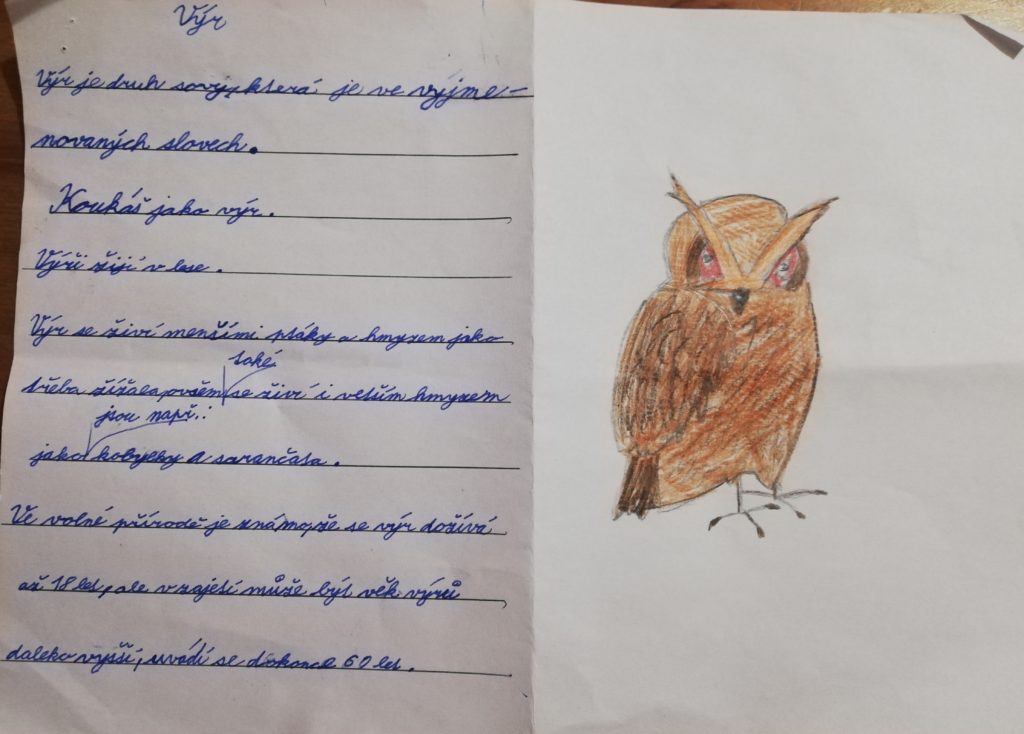 Výr
Výr je druh sovy, která je ve vyjme-
novaných slovech.
Koukáš jako výr.
Výři žijí v lese.
Výr se živí menšími ptáky a hmyzem jako
také
třeba žížala, ovšem se živí i vetším hmyzem
jsou např.:
jako kobylky a sarančata.
Ve volné přírodě je známo, že se výr dožívá
až 18 let, ale v zajetí může být věk výrů
daleko vyšší, uvádí se dokonce 60 let.